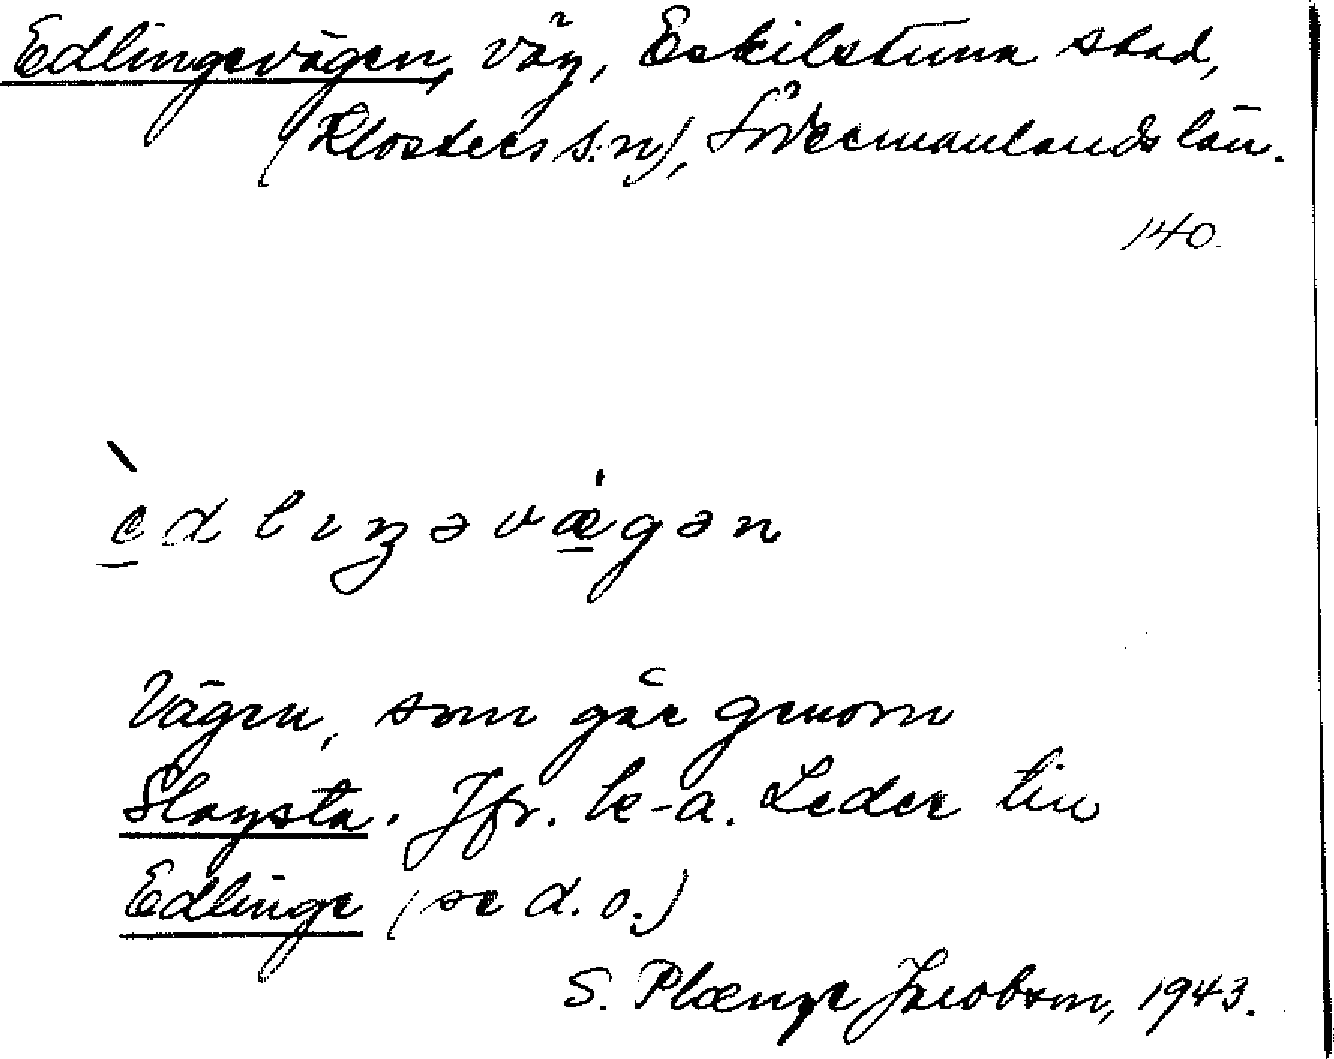 Edlingevägen, väg, Eskilstuna stad,
(Klosters s:n), Södermanlands län.
140.
èdlıŋəvægən
Vägen, som går genom
Slagsta. Jfr. k-a. Leder till
Edlinge (se d. o.)
S. Plænge Jacobson, 1943.